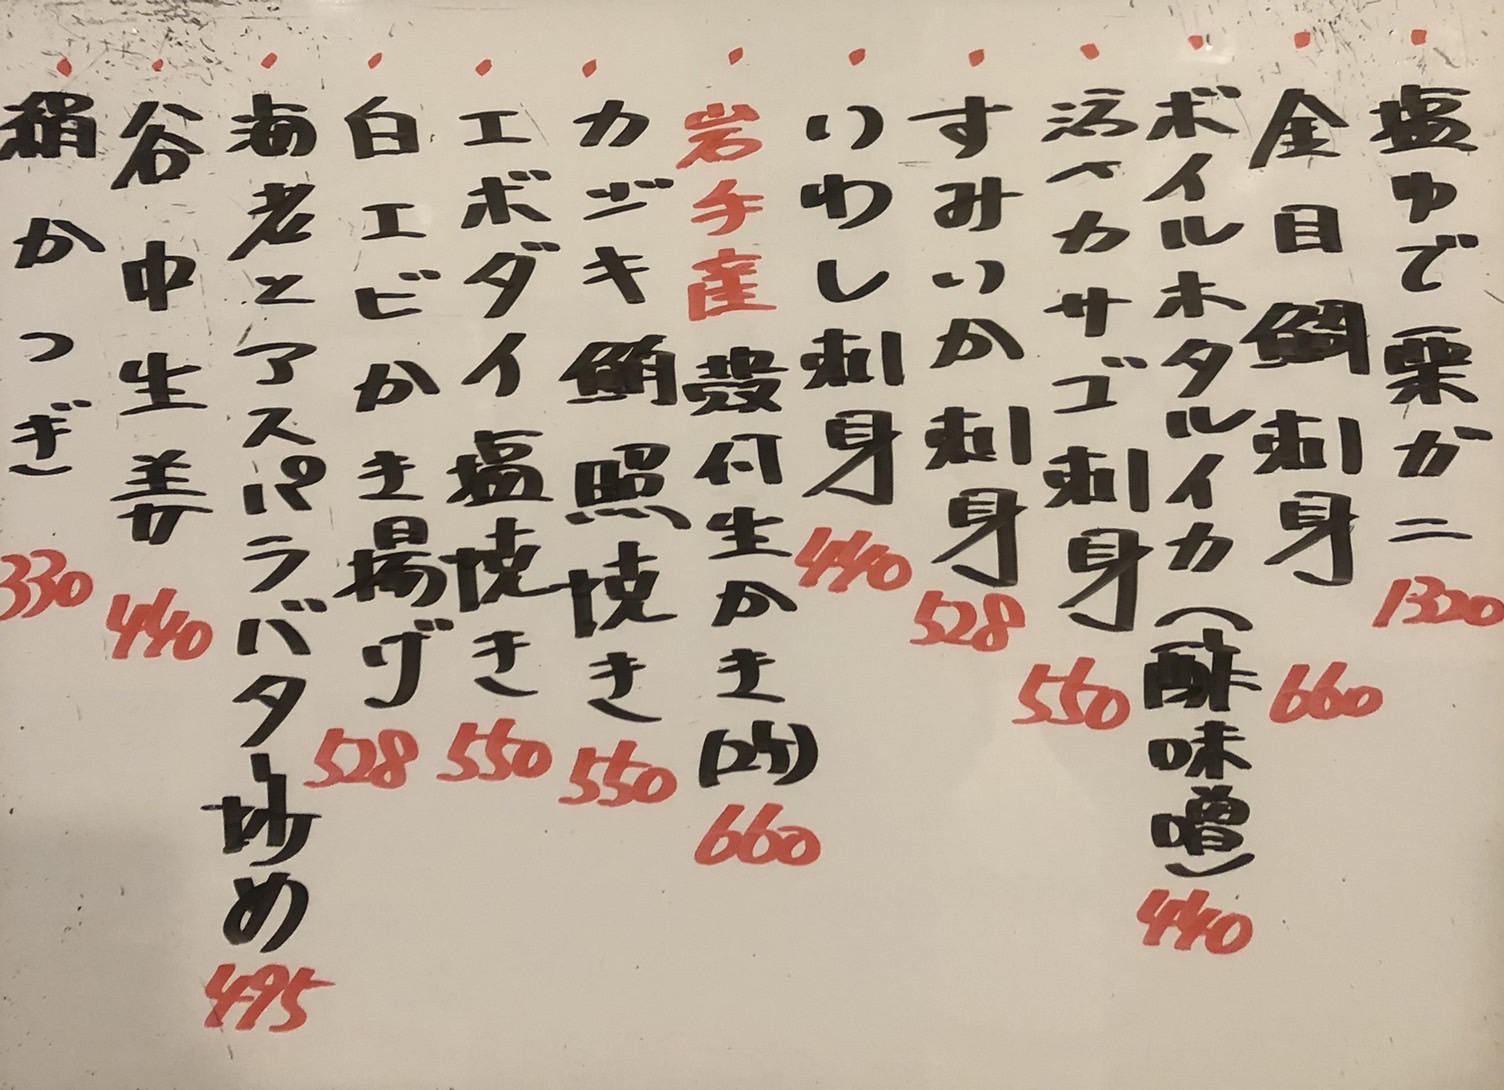 塩ゆで栗ガニ 1320
金目鯛刺身 660
ボイルホタルイカ(酢味噌) 440
活〆カサゴ刺身 550
すみいか刺身 528
いわし刺身 440
岩手産殻付生かき(2ケ) 660
カジキ鮪照焼き 550
エボダイ塩焼き 550
白エビかき揚げ 528
海老とアスパラバター炒め 495
谷中生姜 440
絹かつぎ 330